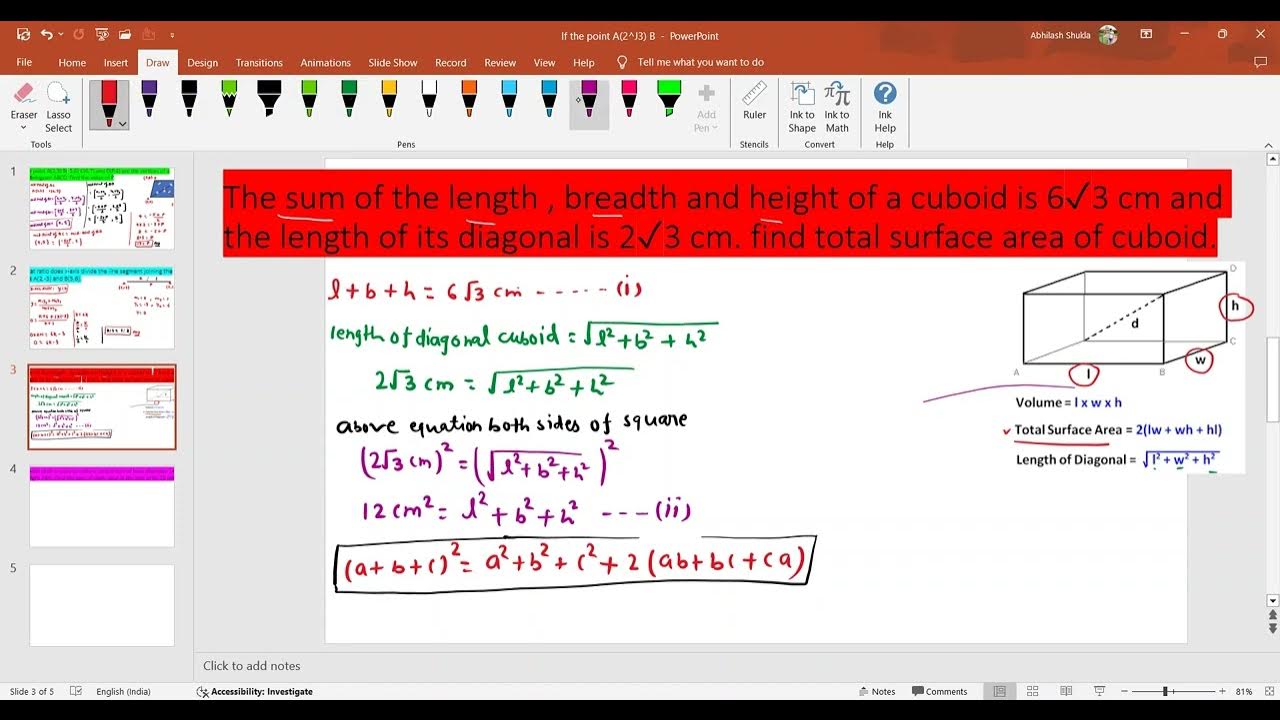 If the point A(2^J3) B - PowerPoint
Abhilash Shukla
File Home Insert Draw Design Transitions Animations Slide Show Record Review View Help Tell me what you want to do
Eraser
Lasso Select
Add Pen
Ruler
Ink to Shape
Ink to Math
Ink Help
Tools
Pens
Stencils
Convert
Help
1
2
3
4
5
The sum of the length , breadth and height of a cuboid is 6✓3 cm and
the length of its diagonal is 2✓3 cm. find total surface area of cuboid.
l + b + h = 6√3 cm ------ (i)
length of diagonal cuboid = √l² + b² + h²
2√3 cm = √l² + b² + h²
above equation both sides of square
(2√3 cm)² = (√l² + b² + h²)²
12 cm² = l² + b² + h² --- (ii)
(a + b + c)² = a² + b² + c² + 2 (ab + bc + ca)
D
h
d
C
w
A
l
B
Volume = l x w x h
✓ Total Surface Area = 2(lw + wh + hl)
Length of Diagonal = √l² + w² + h²
Click to add notes
Slide 3 of 5 English (India) Accessibility: Investigate Notes Comments 81%